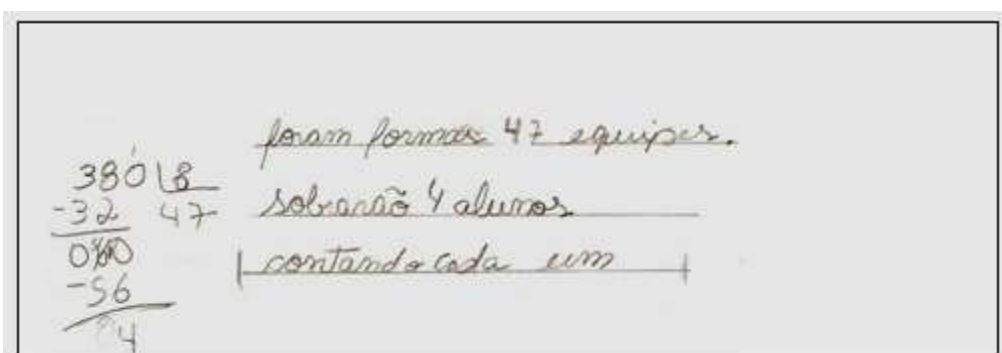 foram formas 47 equipes.
380 8
-32 47
060
-56
4
sobranão 4 alunos
contando cada um